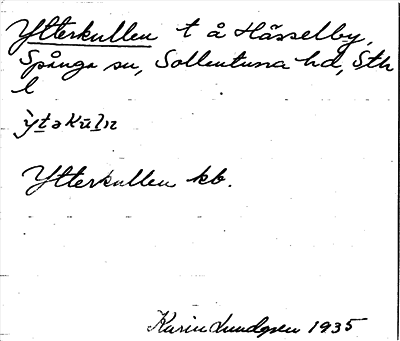 Ytterkullen t å Hässelby,
Spånga sn, Sollentuna hd, Sth
l
`ytəkuln
Ytterkullen kb.
Karin Lundgren 1935